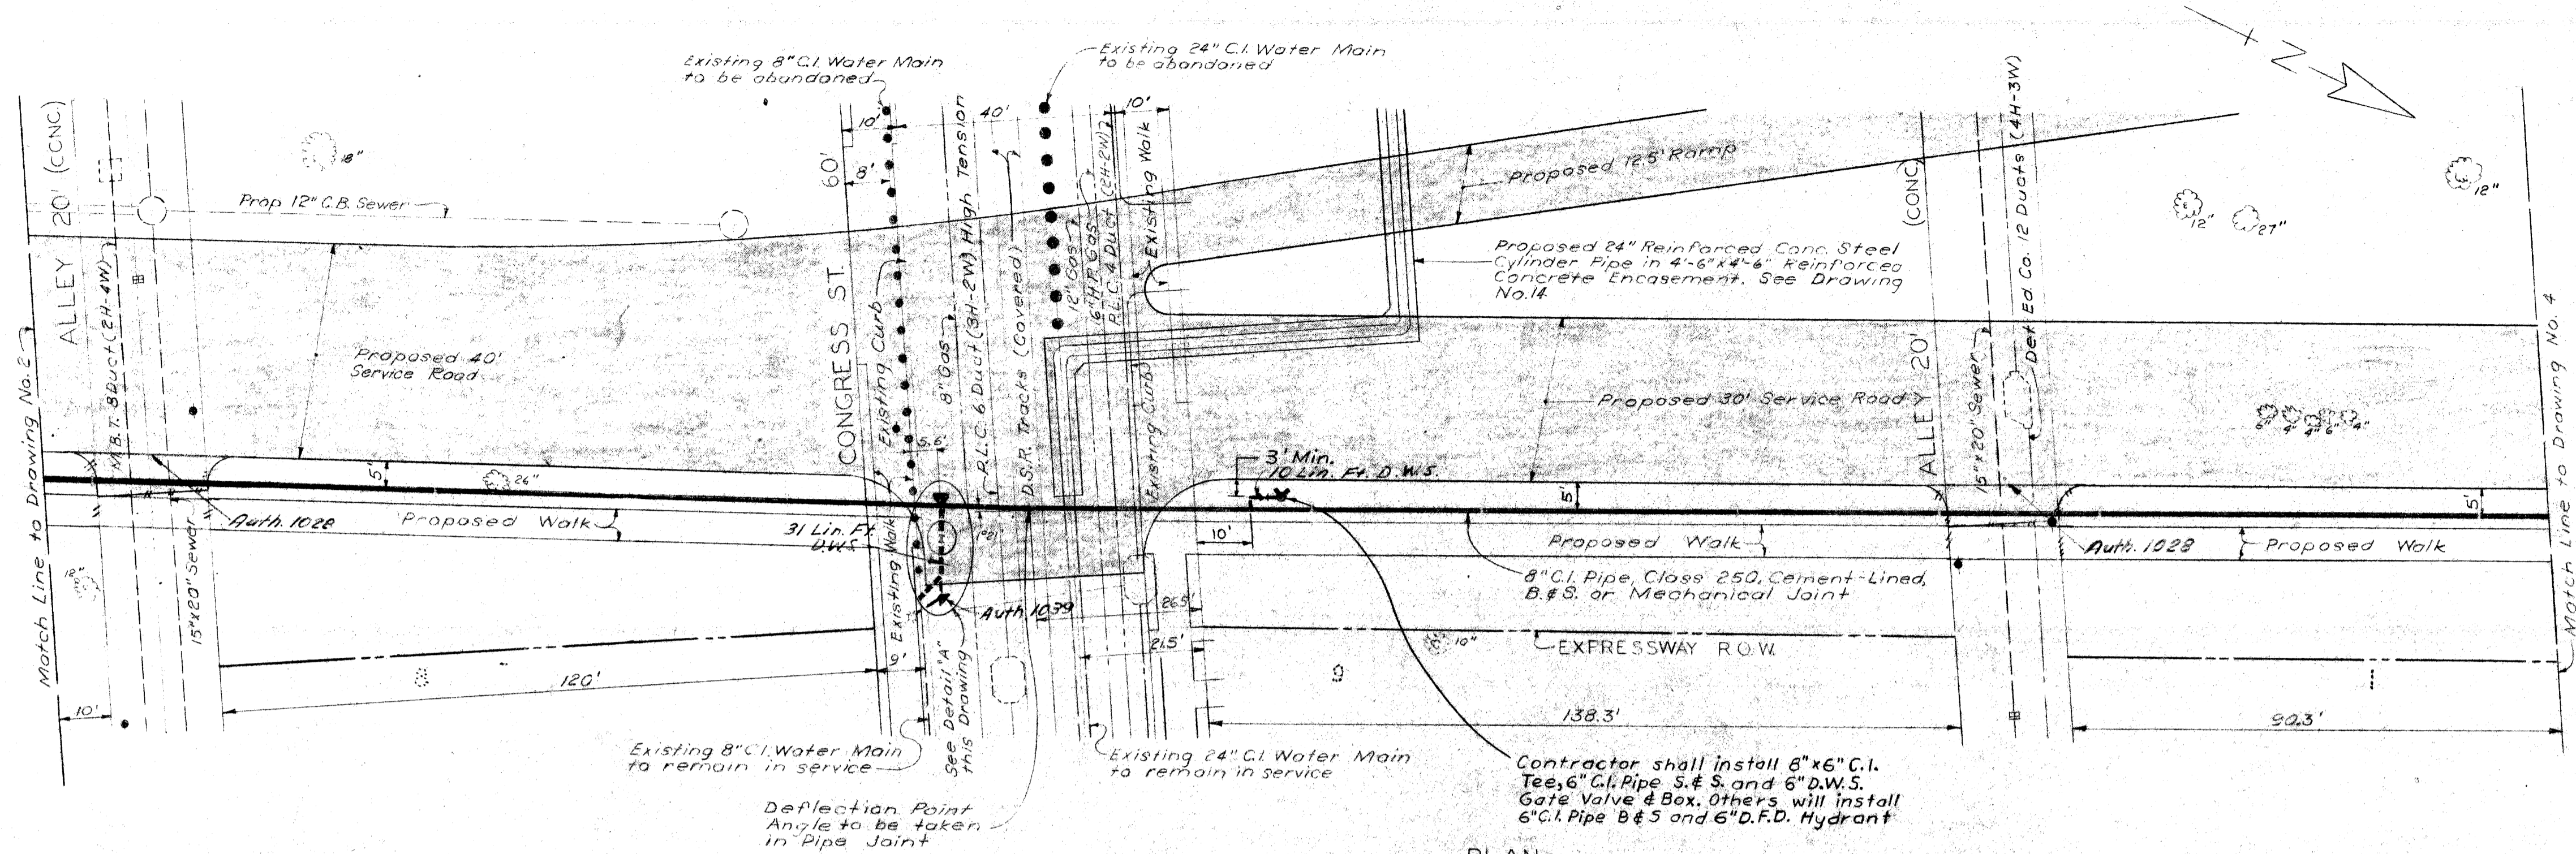 Existing 8" C.I. Water Main
to be abandoned
Existing 24" C.I. Water Main
to be abandoned
N
ALLEY 20' (CONC.)
18"
Prop 12" C.B. Sewer
M.B.T. 8 Duct (2H-4W)
Match Line to Drawing No. 2
Proposed 40'
Service Road
60'
10'
8'
40'
10'
CONGRESS ST.
Existing Curb
8" Gas
P.L.C. 6 Duct (3H-2W) High Tension
D.S.R. Tracks (Covered)
12" Gas
6" H.P. Gas
P.L.C. 4 Duct (2H-2W)
Existing Walk
Existing Curb
Proposed 12.5' Ramp
Proposed 24" Reinforced Conc. Steel
Cylinder Pipe in 4'-6"x4'-6" Reinforced
Concrete Encasement. See Drawing
No. 14
ALLEY 20' (CONC.)
15"x20" Sewer
Det. Ed. Co. 12 Ducts (4H-3W)
12"
27"
12"
Proposed 30' Service Road
6" 4" 4" 6" 4"
Match Line to Drawing No. 4
5'
26"
5.6'
3' Min.
10 Lin. Ft. D.W.S.
5'
5'
Auth. 1028
Proposed Walk
31 Lin. Ft.
D.W.S.
Existing Walk
10'
Proposed Walk
Auth. 1028
Proposed Walk
12"
15"x20" Sewer
Auth. 1039
8" C.I. Pipe, Class 250, Cement-Lined,
B. & S. or Mechanical Joint
26.5'
21.5'
10"
EXPRESSWAY R.O.W.
120'
9'
Existing Walk
See Detail "A"
this Drawing
10'
138.3'
90.3'
Existing 8" C.I. Water Main
to remain in service
Existing 24" C.I. Water Main
to remain in service
Deflection Point
Angle to be taken
in Pipe Joint
Contractor shall install 8"x6" C.I.
Tee, 6" C.I. Pipe S. & S. and 6" D.W.S.
Gate Valve & Box. Others will install
6" C.I. Pipe B & S and 6" D.F.D. Hydrant
PLAN